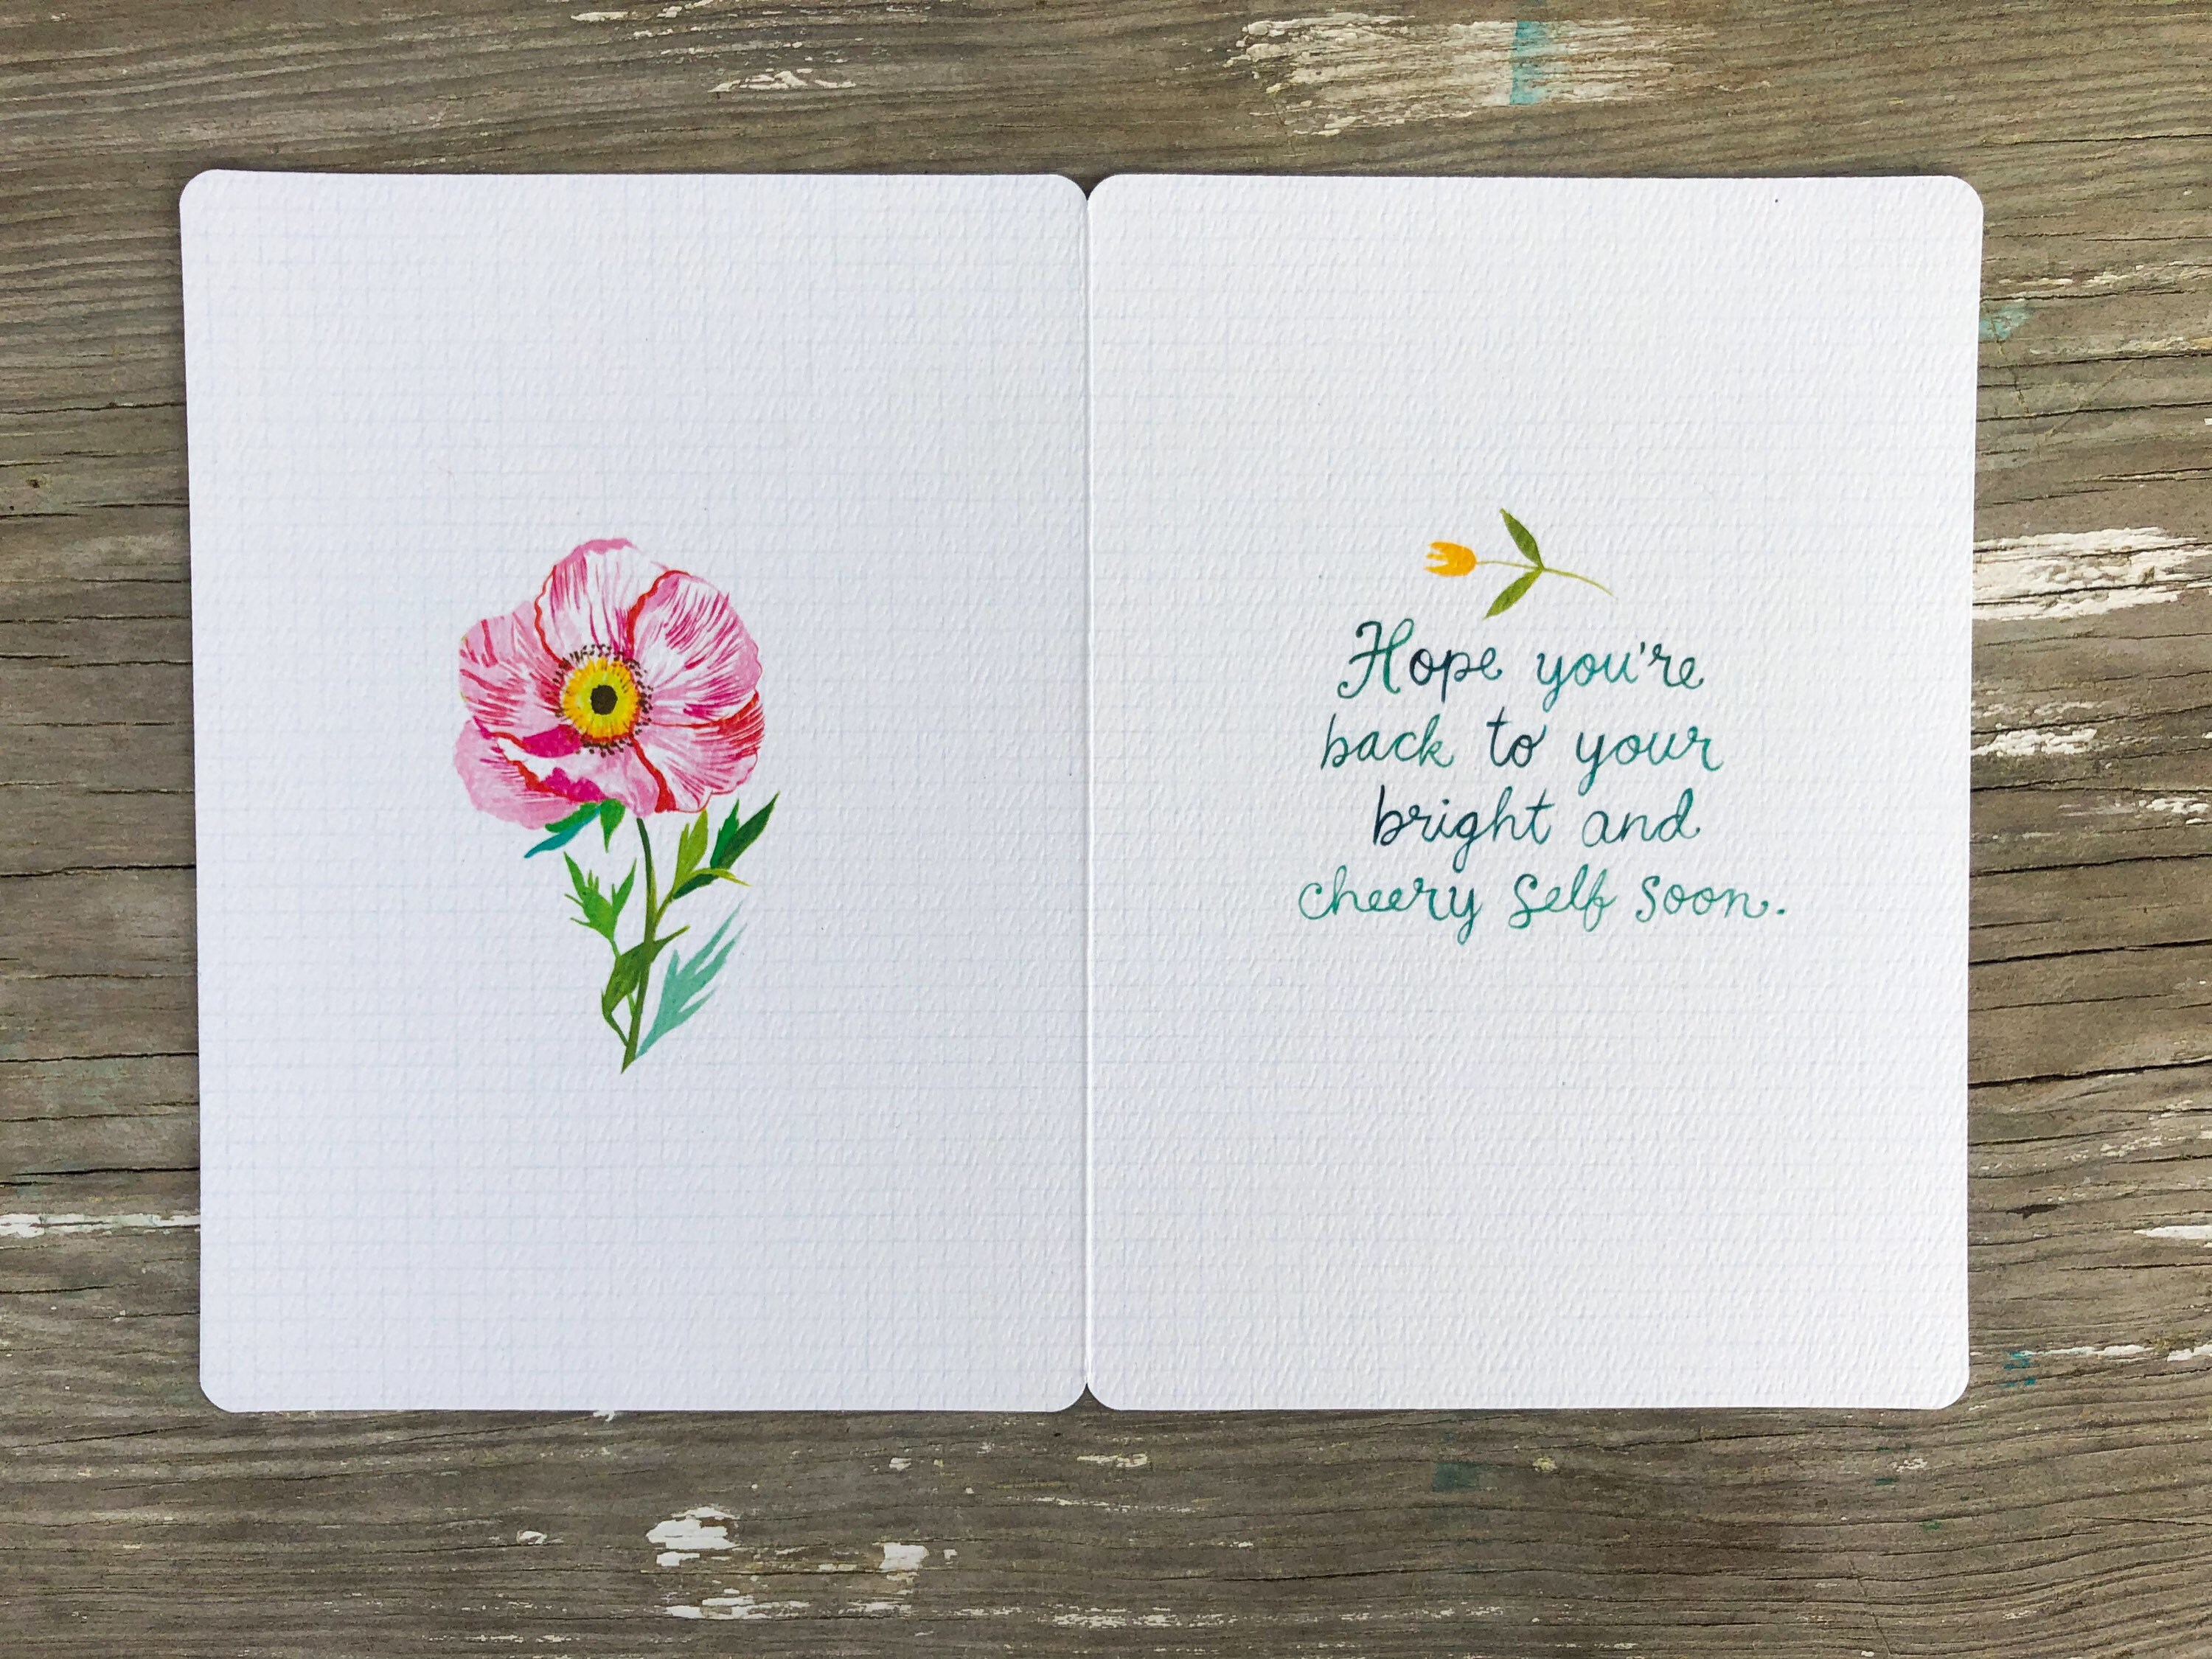 Hope you're
back to your
bright and
cheery self soon.